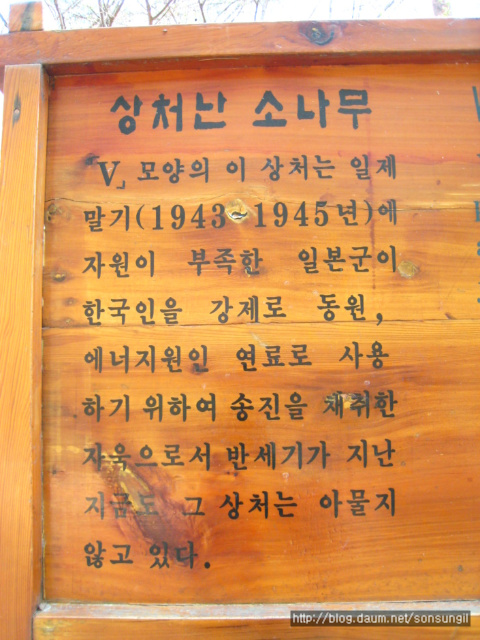 상처난 소나무
「V」 모양의 이 상처는 일제
말기(1943~1945년)에
자원이 부족한 일본군이
한국인을 강제로 동원,
에너지원인 연료로 사용
하기 위하여 송진을 채취한
자욱으로서 반세기가 지난
지금도 그 상처는 아물지
않고 있다.
http://blog.daum.net/sonsungil